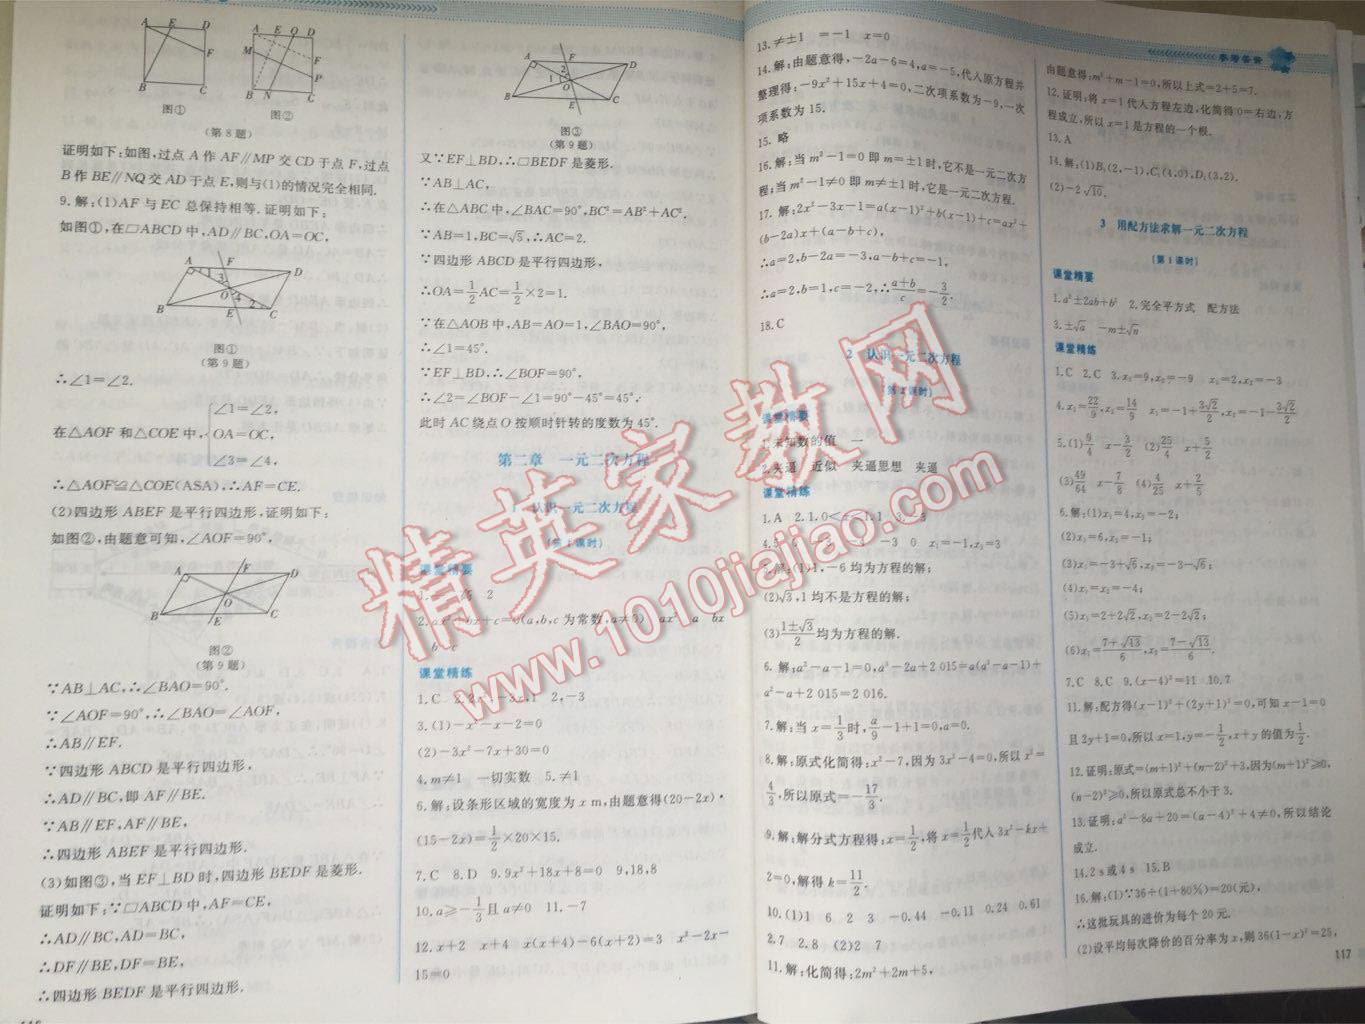 A E D
F
B C
图①
A E Q D
M F
P
B N C
图②
(第8题)
证明如下:如图,过点A作AF∥MP交CD于点F,过点
B作BE∥NQ交AD于点E,则与(1)的情况完全相同.
9.解:(1)AF与EC总保持相等.证明如下:
如图①,在□ABCD中,AD∥BC,OA=OC,
A F D
1 3
O 4 2
B E C
图①
(第9题)
∴∠1=∠2.
∠1=∠2,
在△AOF和△COE中, OA=OC,
∠3=∠4,
∴△AOF≌△COE(ASA),∴AF=CE.
(2)四边形ABEF是平行四边形,证明如下:
如图②,由题意可知,∠AOF=90°,
A F D
O
B E C
图②
(第9题)
∵AB⊥AC,∴∠BAO=90°.
∵∠AOF=90°,∴∠BAO=∠AOF,
∴AB∥EF.
∵四边形ABCD是平行四边形,
∴AD∥BC,即AF∥BE.
∵AB∥EF,AF∥BE,
∴四边形ABEF是平行四边形.
(3)如图③,当EF⊥BD时,四边形BEDF是菱形.
证明如下:∵□ABCD中,AF=CE,
∴AD∥BC,AD=BC,
∴DF∥BE,DF=BE,
∴四边形BEDF是平行四边形.
A F D
2
1 O
B E C
图③
(第9题)
又∵EF⊥BD,∴□BEDF是菱形.
∵AB⊥AC,
∴在△ABC中,∠BAC=90°,BC²=AB²+AC².
∵AB=1,BC=√5,∴AC=2.
∵四边形ABCD是平行四边形,
∴OA=1/2AC=1/2×2=1.
∵在△AOB中,AB=AO=1,∠BAO=90°,
∴∠1=45°.
∵EF⊥BD,∴∠BOF=90°,
∴∠2=∠BOF-∠1=90°-45°=45°,
此时AC绕点O按顺时针转的度数为45°.
第二章 一元二次方程
1 认识一元二次方程
(第1课时)
课堂精要
课堂精练
3.(1)-x²-x-2=0
(2)-3x²-7x+30=0
4.m≠1 一切实数 5.≠1
6.解:设条形区域的宽度为x m,由题意得(20-2x)·
(15-2x)=1/2×20×15.
7.C 8.D 9.9x²+18x+8=0 9,18,8
10.a≥-1/3且a≠0 11.-7
12.x+2 x+4 x(x+4)-6(x+2)=3 x²-2x-
15=0
参考答案
13.≠±1 =-1 x=0
14.解:由题意得,-2a-6=4,a=-5,代入原方程并
整理得:-9x²+15x+4=0,二次项系数为-9,一次
项系数为15.
15.略
16.解:当m²-1=0即m=±1时,它不是一元二次方
程;当m²-1≠0即m≠±1时,它是一元二次方程.
17.解:2x²-3x-1=a(x-1)²+b(x-1)+c=ax²+
(b-2a)x+(a-b+c),
∴a=2,b-2a=-3,a-b+c=-1,
∴a=2,b=1,c=-2,∴(a+b)/c=-3/2.
18.C
2 认识一元二次方程
(第2课时)
课堂精要
1.未知数的值 二
2.夹逼 近似 夹逼思想 夹逼
课堂精练
5.解:(1)1,-6均为方程的解;
(2)√3,1均不是方程的解;
(3)(1±√3)/2均为方程的解.
6.解:a²-a-1=0,a³-2a+2 015=a(a²-a-1)+
a²-a+2 015=2 016.
7.解:当x=1/3时,a/9-1+1=0,a=0.
8.解:原式化简得:x²-7,因为3x²-4=0,所以x²=
4/3,所以原式=-17/3.
9.解:解分式方程得:x=1/2,将x=1/2代入3x²-kx+
2=0,解得k=11/2.
10.(1)1 6 2 3 -0.44 -0.11 0.24 0.61
2.7 2.8 (2)2 7
11.解:化简得:2m²+2m+5,
由题意得:m²+m-1=0,所以上式=2+5=7.
12.证明:将x=1代入方程左边,化简得0=右边,方
程成立,所以x=1是方程的一个根.
13.A
14.解:(1)B₁(2,-1),C₁(4,0),D₁(3,2).
(2)-2√10.
3 用配方法求解一元二次方程
(第1课时)
课堂精要
1.a²±2ab+b² 2.完全平方式 配方法
3.±√a -m±√n
课堂精练
1.C 2.C 3.x₁=9,x₂=-9 x₁=2,x₂=-3
4.x₁=22/9,x₂=14/9 x₁=-1+3√2/2,x₂=-1-3√2/2
5.(1)9/4 x-3/2 (2)25/4 x+5/2
(3)49/64 x-7/8 (4)4/25 x+2/5
6.解:(1)x₁=4,x₂=-2;
(2)x₁=6,x₂=-1;
(3)x₁=-3+√6,x₂=-3-√6;
(4)x₁=-4,x₂=-2;
(5)x₁=2+2√2,x₂=2-2√2;
(6)x₁=(7+√13)/6,x₂=(7-√13)/6.
7.C 8.C 9.(x-4)²=11 10.7
11.解:配方得(x-1)²+(2y+1)²=0,可知x-1=0
且2y+1=0,所以x=1,y=-1/2,x+y的值为1/2.
12.证明:原式=(m+1)²+(n-2)²+3,因为(m+1)²≥0,
(n-2)²≥0,所以原式总不小于3.
13.证明:a²-8a+20=(a-4)²+4≠0,所以结论
成立.
14.2 s或4 s 15.B
16.解:(1)∵36÷(1+80%)=20(元),
∴这批玩具的进价为每个20元.
(2)设平均每次降价的百分率为x,则36(1-x)²=25,
117
精英家教网
www.1010jiajiao.com